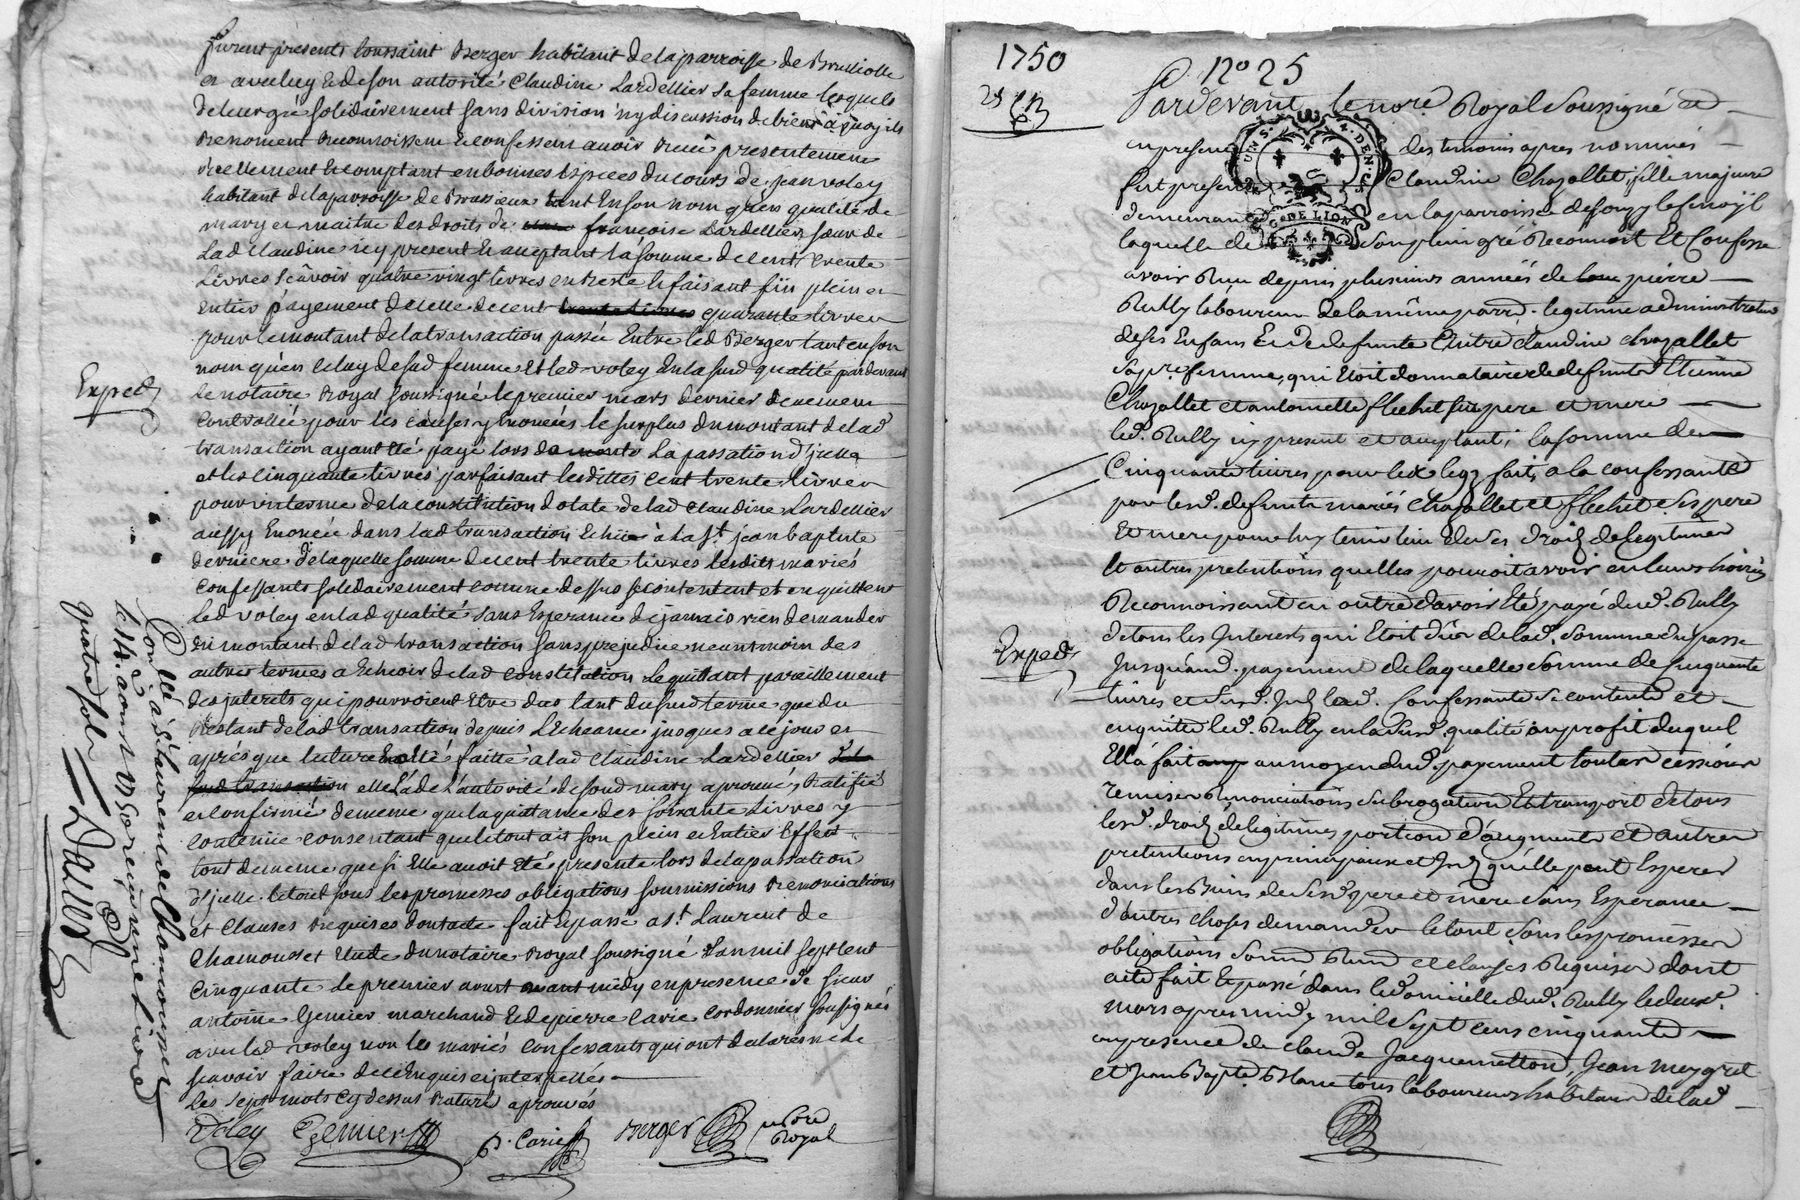 furent présents toussaint Berger habitant delaparroisse de Brulliolle
et avecluy & deson autorité Claudine Lardellier sa femme lesquels
deleurgré solidairement sans division ny discussion debiens à quoy ils
Renoncent Reconnoissent & confessent avoir Receu presentement
Reellement & comptant enbonnes Especes ducours de jean voley
habitant delaparroisse de Brussieux tant Enson nom qu'en qualité de
mary et maitre des droits de françoise Lardellier sœur de
Lad Claudine icy present & acceptant la somme decent trente
Livres sçavoir quatre vingt livres en reste & faisant fin plein et
Entier payement decelle decent trente livres quarante livres
pour lemontant delatransaction passée Entre led Berger tant en son
nom qu'en celuy desad femme & led voley Enlasusd qualité pardevant
le notaire Royal soussigné le premier mars dernier deuement
Controllée pour les causes y enoncées le surplus dumontant delad
transaction ayant eté payé lors de La passation d'jcelle
et les cinquante livres parfaisant lesdittes cent trente livres
pour un terme de la constitution dotale delad Claudine Lardellier
aussy Enoncée dans lad transaction Echüe à la St. jean baptiste
derniere de laquelle somme decent trente livres lesdits mariés
Confessants solidairement comme dessus se contentent et en quittent
Led voley enlad qualité sans Esperance dejamais rien demander
du montant delad transaction sans prejudice neantmoins des
autres termes a Echeoir delad constitution Lequittant pareillement
des jnterets qui pourroient Etre dus tant dususd terme que du
Restant delad transaction depuis L'Echeance jusques acejour et
aprés que lecture a eté faitte alad Claudine Lardellier dela
susd transaction elle l'a de l'autorité desond mary aprouvé, Ratiffié
et confirmé dememe que laquittance des soixante Livres y
contenüe consentant que letout ait son plein & Entier Effet
tout dememe que si Elle avoit eté presente lors delapassation
d'jcelle. Letout sous les promesses obligations soumissions Renonciations
et Clauses Requises dont acte fait & passé a St. Laurent de
Chamousset Etude dunotaire Royal soussigné L'an mil sept cent
cinquante le premier aoust avant midy en presence de sieur
antoine Genier marchand & de pierre Carie Cordonnier soussignés
avec led voley non les mariés confessants qui ont declaré ne le
sçavoir faire de ce Enquis & jnterpellés
les sept mots cy dessus Raturés aprouvés
Voley Genier P. Carie Berger nore
Royal
Exped
Conllé a St laurent de Chamousset
le 14. aoust 1750 reçu une livre
quatre sols
1750
No 25
Pardevant le nore. Royal soussigné et
en presence des temoins apres nommés
fut presente Claudine Chazallet fille majeure
demeurant en la parroisse de
laquelle de son plein gré Reconnoit Et Confesse
avoir Reçu depuis plusieurs années de pierre
Rully laboureur de la même parrs. legitime administrateur
de ses Enfans & de defunte autre claudine chazallet
sa pre. femme, qui Etoit donnataire de defunts Etienne
Chazallet et antoinette flechet ses pere et mere
led. Rully icy present et acceptant, la somme de
Cinquante livres pour le legz fait a la confessante
par lesd. defunts mariés Chazallet et flechet ses pere
Et mere pour luy tenir lieu de ses droits de legitimes
Et autres pretentions quelles pouroit avoir en leurs hoiries
Reconnoissant en outre d'avoir Eté payé dud. Rully
de tous les Interests qui Etoit dûs de lad. somme du passé
Jusqu'aud. payement de laquelle somme de cinquante
livres et susd. Jnts. lad. Confessante se contente et
en quitte led. Rully en la susd. qualité au profit duquel
Ell'a fait au moyen dud. payement toutes cessions
remises renonciations subrogation Et transport de tous
lesd. droits de legitimes portion d'augment et autres
pretentions en principaux et Jntz qu'elle peut Esperer
dans les Biens de sesd. pere et mere sans Esperance
d'autres choses demander le tout sous les promesses
obligations soumd Renond et clauses Requises dont
acte fait & passé dans le domicille dud. Rully le
mars apres midy mil sept cens cinquante
en presence de claude Jacquemetton, Jean
et Jean Bapte. Blanc tous laboureurs habitans de lad
Exped
C. DE LION